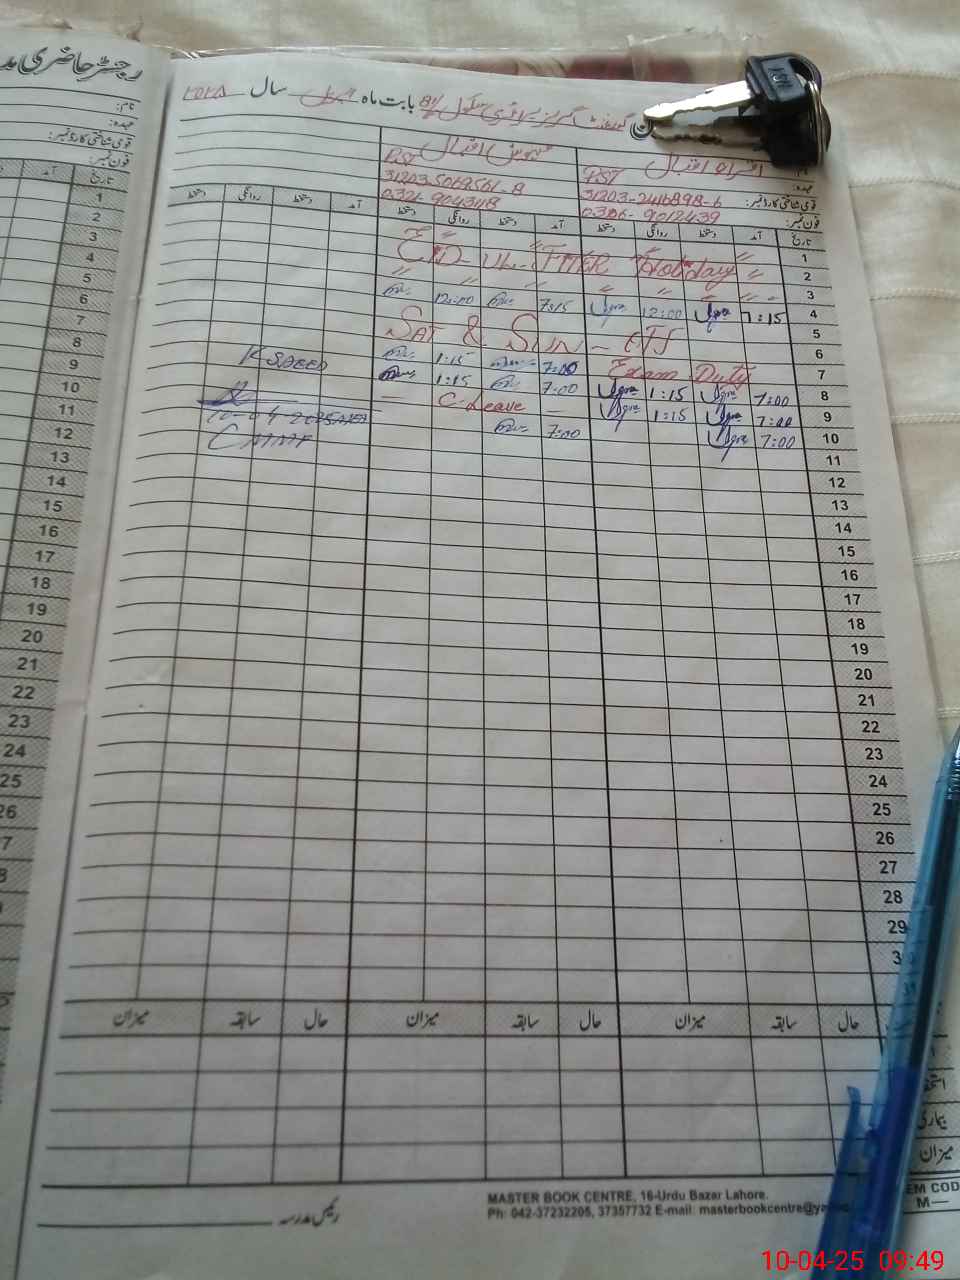 رجسٹر حاضری
نام:
عہدہ:
قومی شناختی کارڈ نمبر:
فون نمبر:
تاریخ
آمد
1
2
3
4
5
6
7
8
9
10
11
12
13
14
15
16
17
18
19
20
21
22
23
24
25
26
گورنمنٹ گرلز پرائمری سکول بابت ماہ اپریل سال ۲۰۲۵
اقراء اقبال مہوش اقبال
عہدہ: PST PST
قومی شناختی کارڈ نمبر: 31203-5069561-8
فون نمبر: 0306-9012439 0321-9043118
تاریخ آمد دستخط روانگی دستخط آمد دستخط روانگی دستخط آمد دستخط روانگی دستخط
1
EID-UL-FITER Holiday 2
3
12:00 7:15 12:00 7:15 4
SAT & SUN - OFF 5
6
1:15 7:00 Exam Duty 7
K SAEED 1:15 7:00 1:15 7:00 8
C-Leave 1:15 7:00 9
10-04-2025 7:00 7:00 10
11
12
13
14
15
16
17
18
19
20
21
22
23
24
25
26
27
28
29
حال سابقہ میزان حال سابقہ میزان حال سابقہ میزان
بیماری
میزان
رئیس مدرسہ
MASTER BOOK CENTRE, 16-Urdu Bazar Lahore.
Ph: 042-37232205, 37357732 E-mail: masterbookcentre@ya
EM COD
M—
10-04-25 09:49